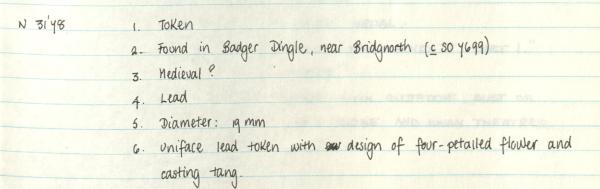 N 31'78 1. Token
2. Found in Badger Dingle, near Bridgnorth (c SO 7699)
3. Medieval?
4. Lead
5. Diameter: 19 mm
6. Uniface lead token with design of four-petailed flower and
casting tang.